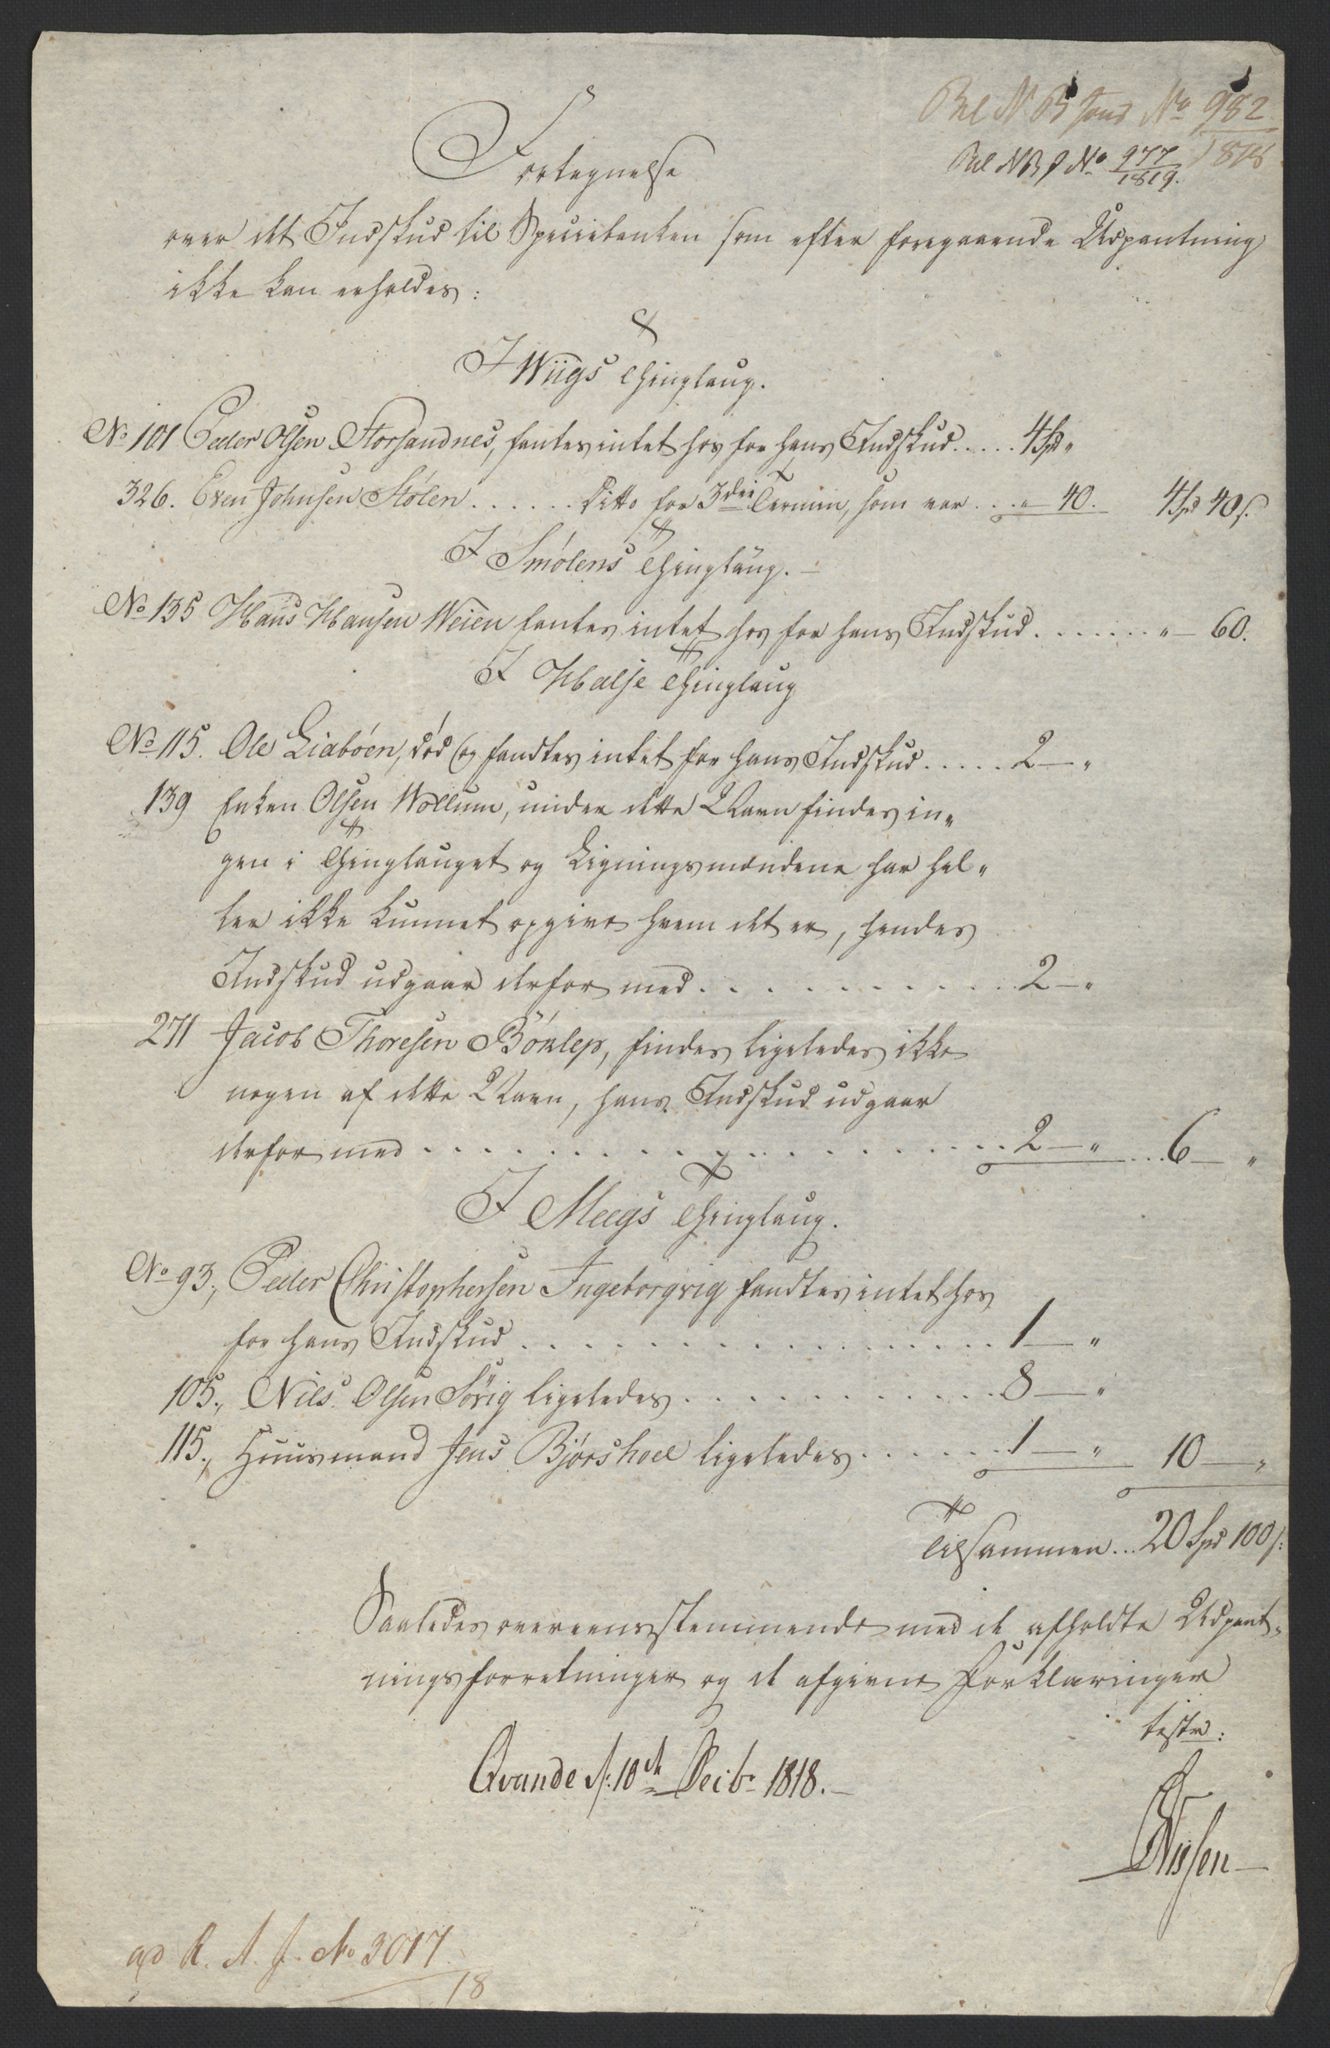 Bel N B Jour No 982
1818
Bel N B J No 977
1819.
Fortegnelse
over det Indskud til Speciebanken som efter foregaaende Udpantning
ikke kan erholdes:
I Wiigs Thinglaug.
No 101 Peder Olsen Storsandnes, fantes intet hos for hans Indskud..... 4 Spd "
326. Even Johnsen Stølen...... Ditto for 3die Termin, som var... " 40. 4 Spd 40 s.
I Smølens Thinglaug. —
No 135 Hans Hansen Weien fantes intet hos for hans Indskud....... " — 60.
I Halse Thinglaug
No 115. Ole Liabøen, død og fandtes intet for hans Indskud..... 2 — "
139 Enken Olsen Wollum, under dette Navn findes in=
gen i Thinglauget og Ligningsmændene har hel=
ler ikke kunnet opgive hvem det er, hendes
Indskud udgaar derfor med........... 2 — "
271 Jacob Thoresen Bøklep, findes ligeledes ikke
nogen af dette Navn, hans Indskud udgaar
derfor med................ 2 — " ... 6 — "
I Meegs Thinglaug.
No 93., Peder Christophersen Ingeborgvig fandtes intet hos
for hans Indskud................ 1 — "
105., Nils Olsen Sørig ligeledes.......... 8 — "
115., Huusmand Jens Bjørshoel ligeledes....... 1 — " 10 — "
Tilsammen... 20 Spd 100 s:
Saaledes overeensstemmende med de afholdte Udpant=
ningsforretninger og de afgivne Forklaringer
testr:
Qvande d: 10de Decbr 1818. —
Nissen
ad R. A. J. No 3017
18